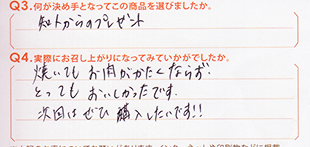 Q3.何が決め手となってこの商品を選びましたか。
知人からのプレゼント
Q4.実際にお召し上がりになってみていかがでしたか。
焼いても お肉がかたくならず、
とっても おいしかったです。
次回は ぜひ 購入したいです!!